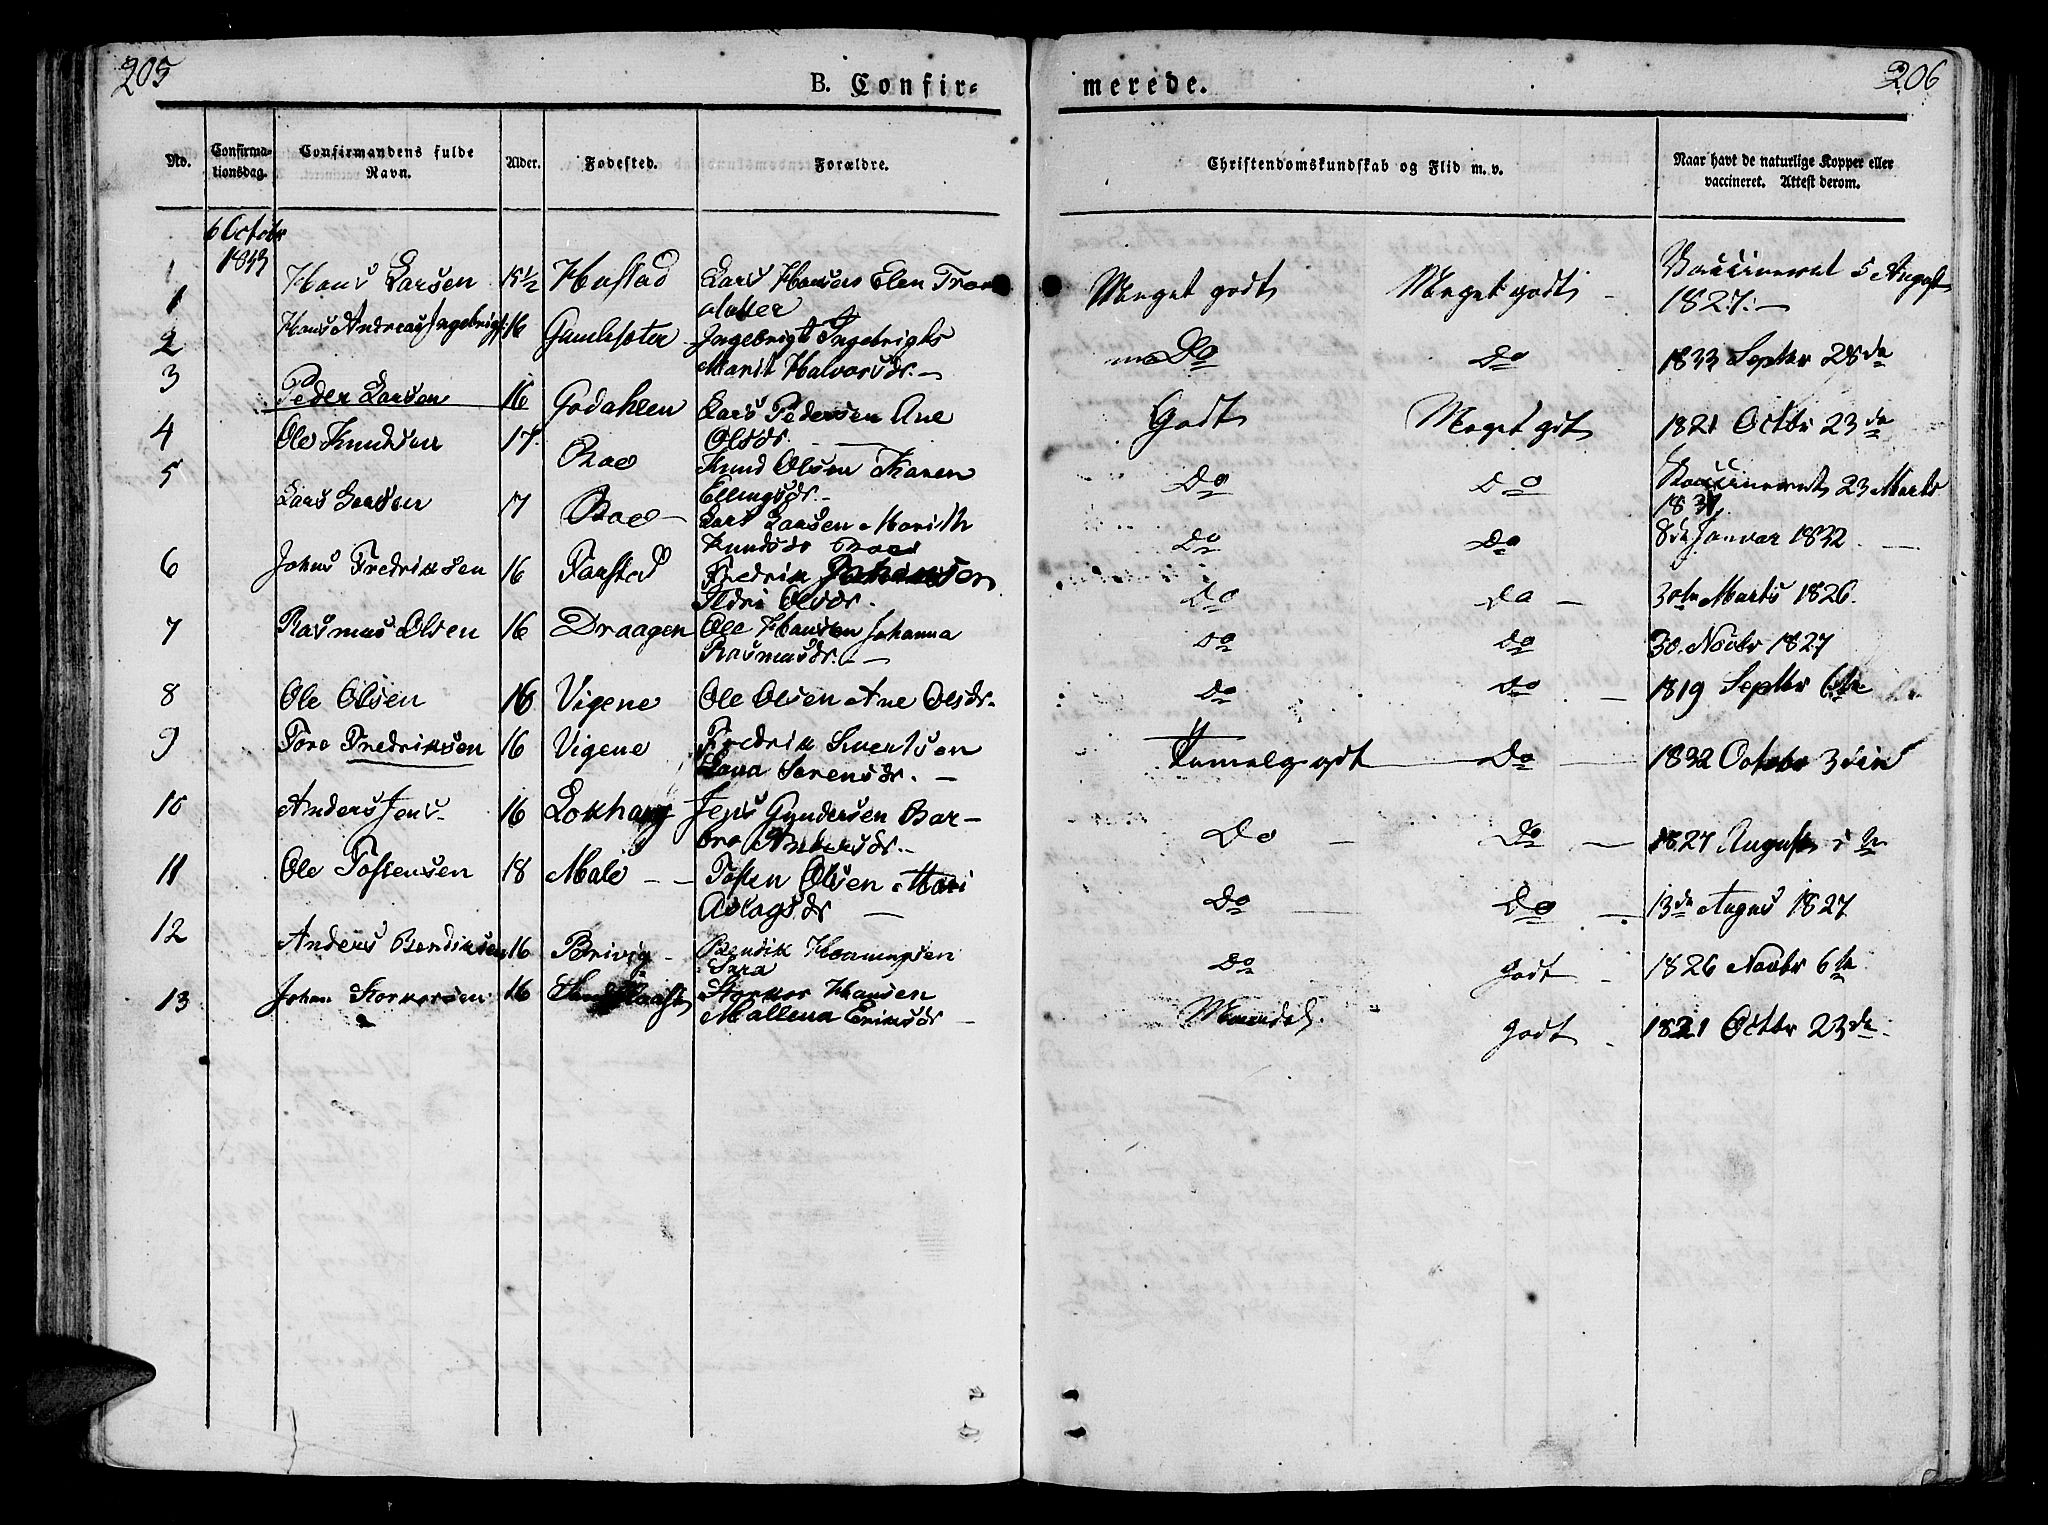 205
B. Confir-
merede.
206
No.
Confirma-
tionsdag.
Confirmandens fulde
Navn.
Alder.
Fødested.
Forældre.
Christendomskundskab og Flid m. v.
Naar havt de naturlige Kopper eller
vaccineret. Attest derom.
6 Octobr
1833
1
1 Hans Larsen 15½ Hustad Lars Hansen Elen Meget godt Meget godt - Vaccineret 5 August
datter 1827.-
2 Hans Andreas Ingebrigts: 16 Ingebrigt Ingebrigts Do Do 1833 Septbr 28de
Marit Halvorsdr.-
3 Peder Larsen 16 Godahlen Lars Pedersen Ane Godt Meget godt 1821 Octbr 23de
Olsdr.
4 Ole Knudsen 17. Boe Knud Olsen Karen Do Do Vaccineret 23 Marts
Ellingsdr.-
5 Lars Larsen 17 Boe - Lars Larsen Marith Do Do 8de Januar 1832
Knudsdr Boe
6 Johns Fredriksen 16 Farstad Fredrik Johansen Do Do - 30te Marts 1826.
Ildri Olsdr.
7 Rasmus Olsen 16 Draagen Ole Hansen Johanna Do Do 30. Novbr 1827
Rasmusdr. -
8 Ole Olsen 16 Vigene Ole Olsen Ane Olsdr. Do Do - 1819 Septbr 6te
9 Tore Fredriksen 16 Vigene Fredrik Sivertsen Temelg godt Do 1832 Octobr 3die
Lana Sørensdr. -
10 Anders Jens 16 Lokhaug Jens Gundersen Bar-
bro Andersdr.- Do - Do - 1827 August
11 Ole Tostensen 18 Male - - Tosten Olsen Mari Do Do - 13de Augus 1827
Aslagsdr -
12 Anders Bendiksen 16 Brivig - Bendik Do Godt - 1826 Novbr 6te
Sara
13 Johan Storkersen 16 Storker Hansen Maadel. Godt - 1821 Octbr 23de.
Mallena Eriksdr -